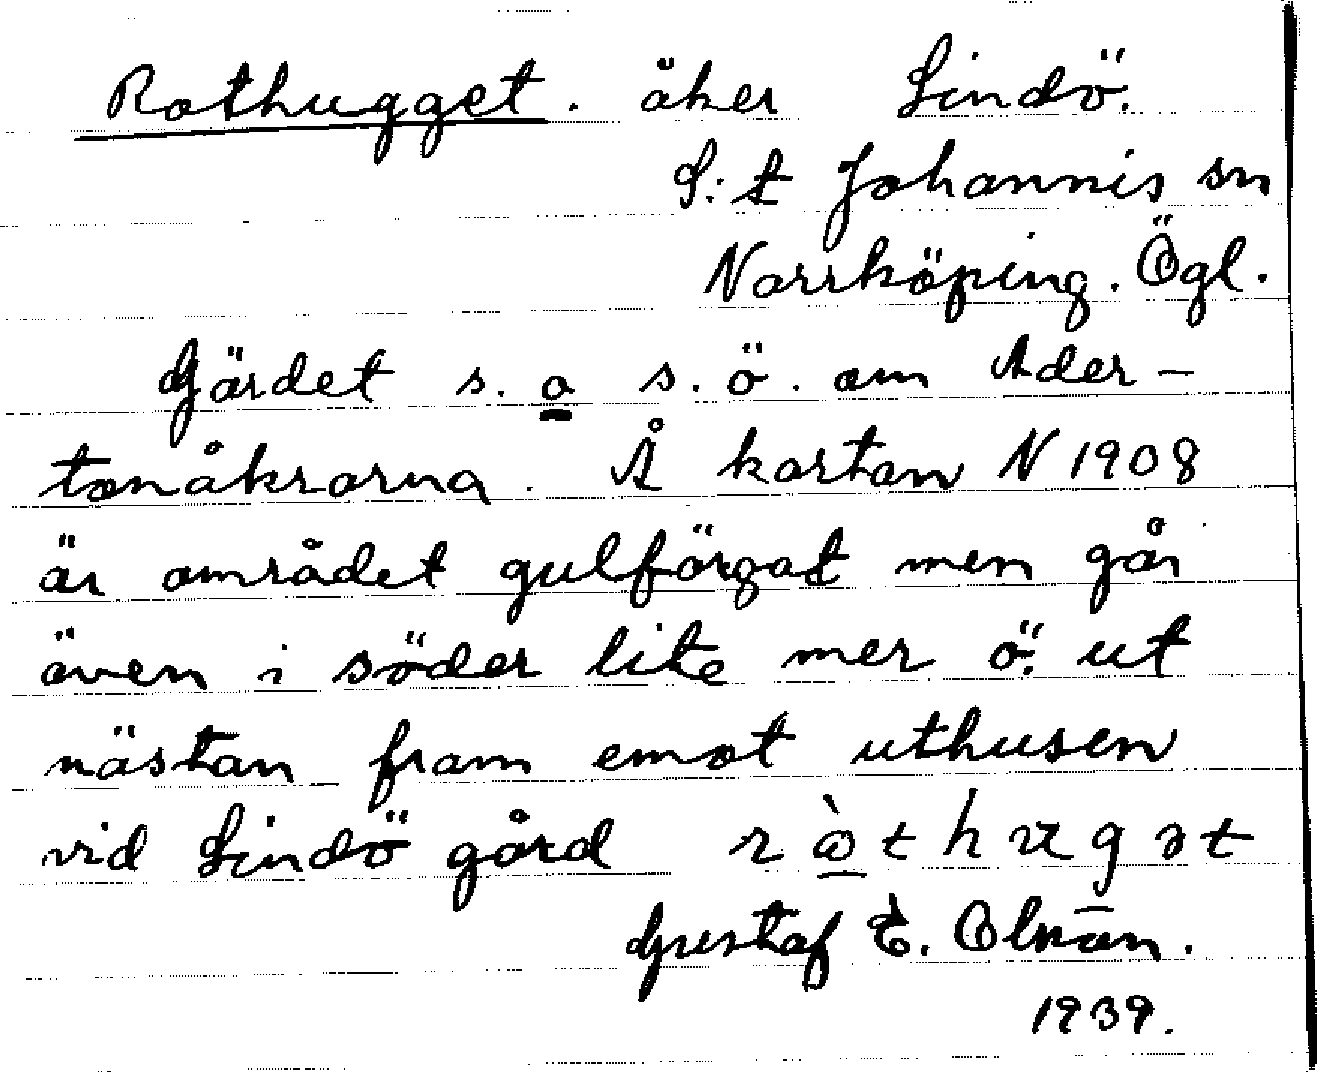 Rothugget. åker Lindö.
S:t Johannis sn
Norrköping. Ögl.
Gärdet s. o s.ö. om Ader-
tonåkrarna. Å kartan N 1908
är området gulfärgat men går
även i söder lite mer ö. ut
nästan fram emot uthusen
vid Lindö gård
Gustaf E.
1939.